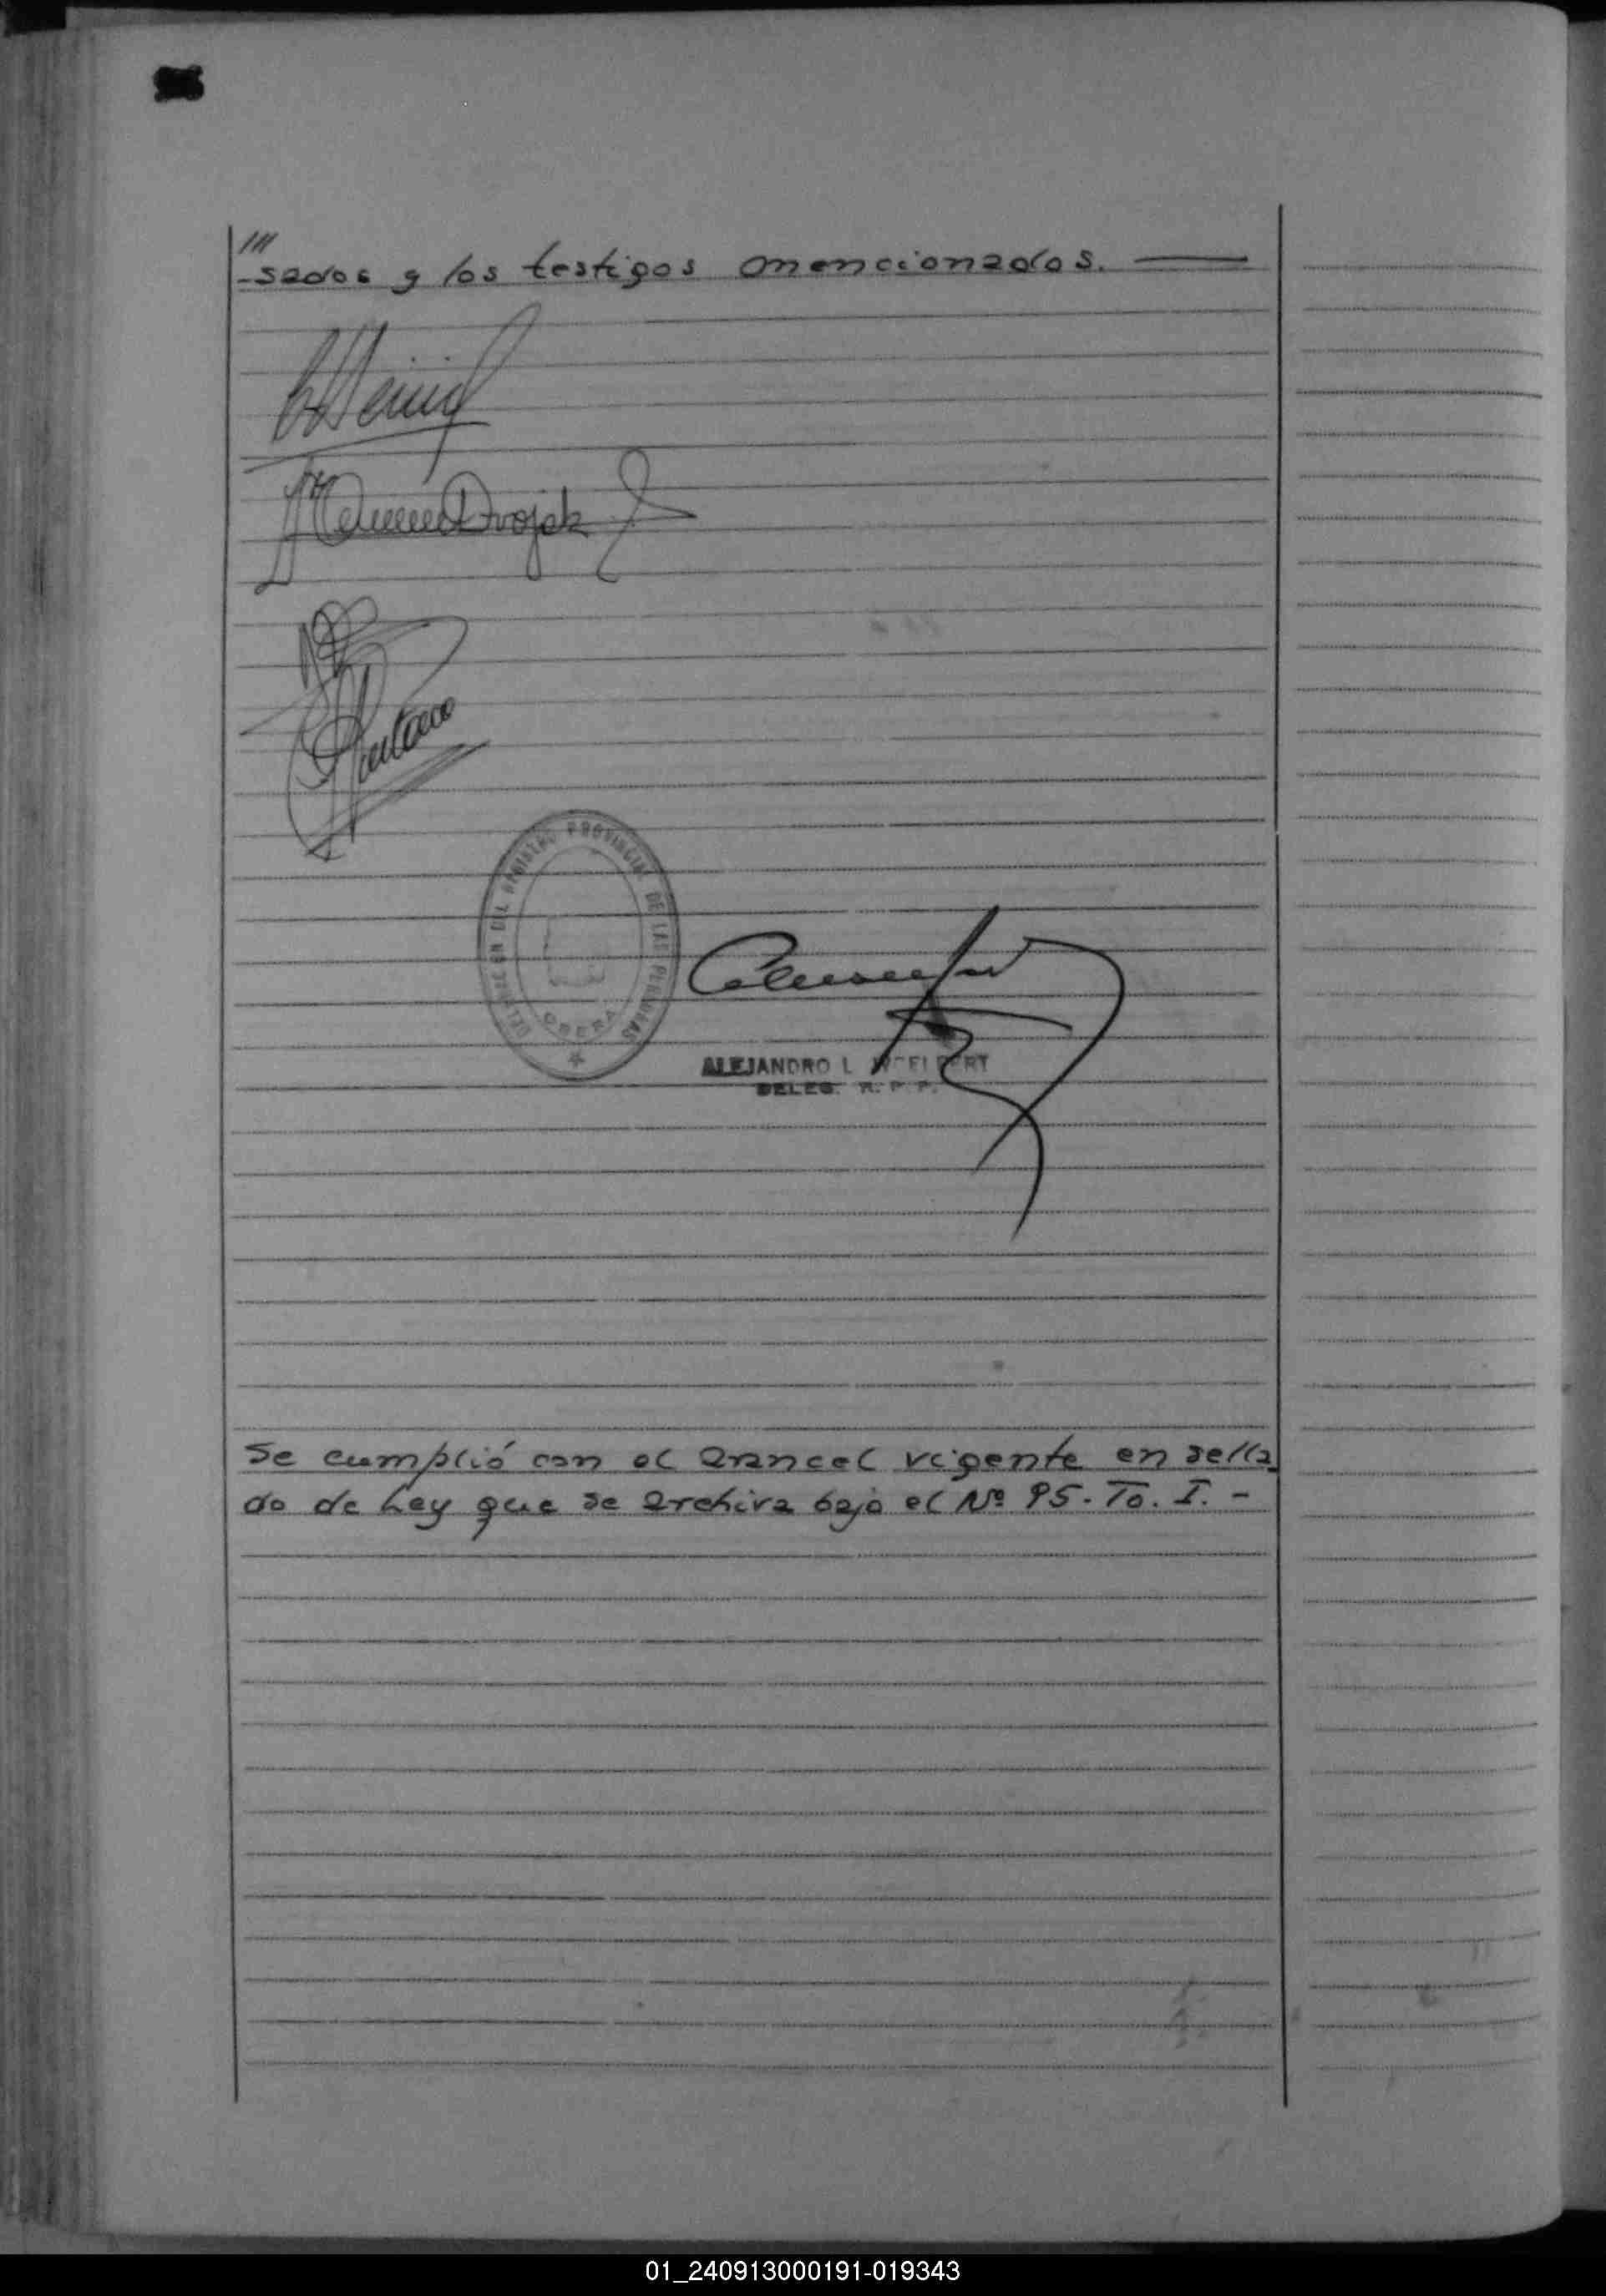 ///
-sados y los testigos mencionados. —
Dvojak
DELEGACION DEL REGISTRO PROVINCIAL DE LAS PERSONAS
OBERA
ALEJANDRO L
DELEG. R. P. P.
Se cumplió con el arancel vigente en sella
do de Ley que se archiva bajo el Nº 95. To. I. -
01_240913000191-019343